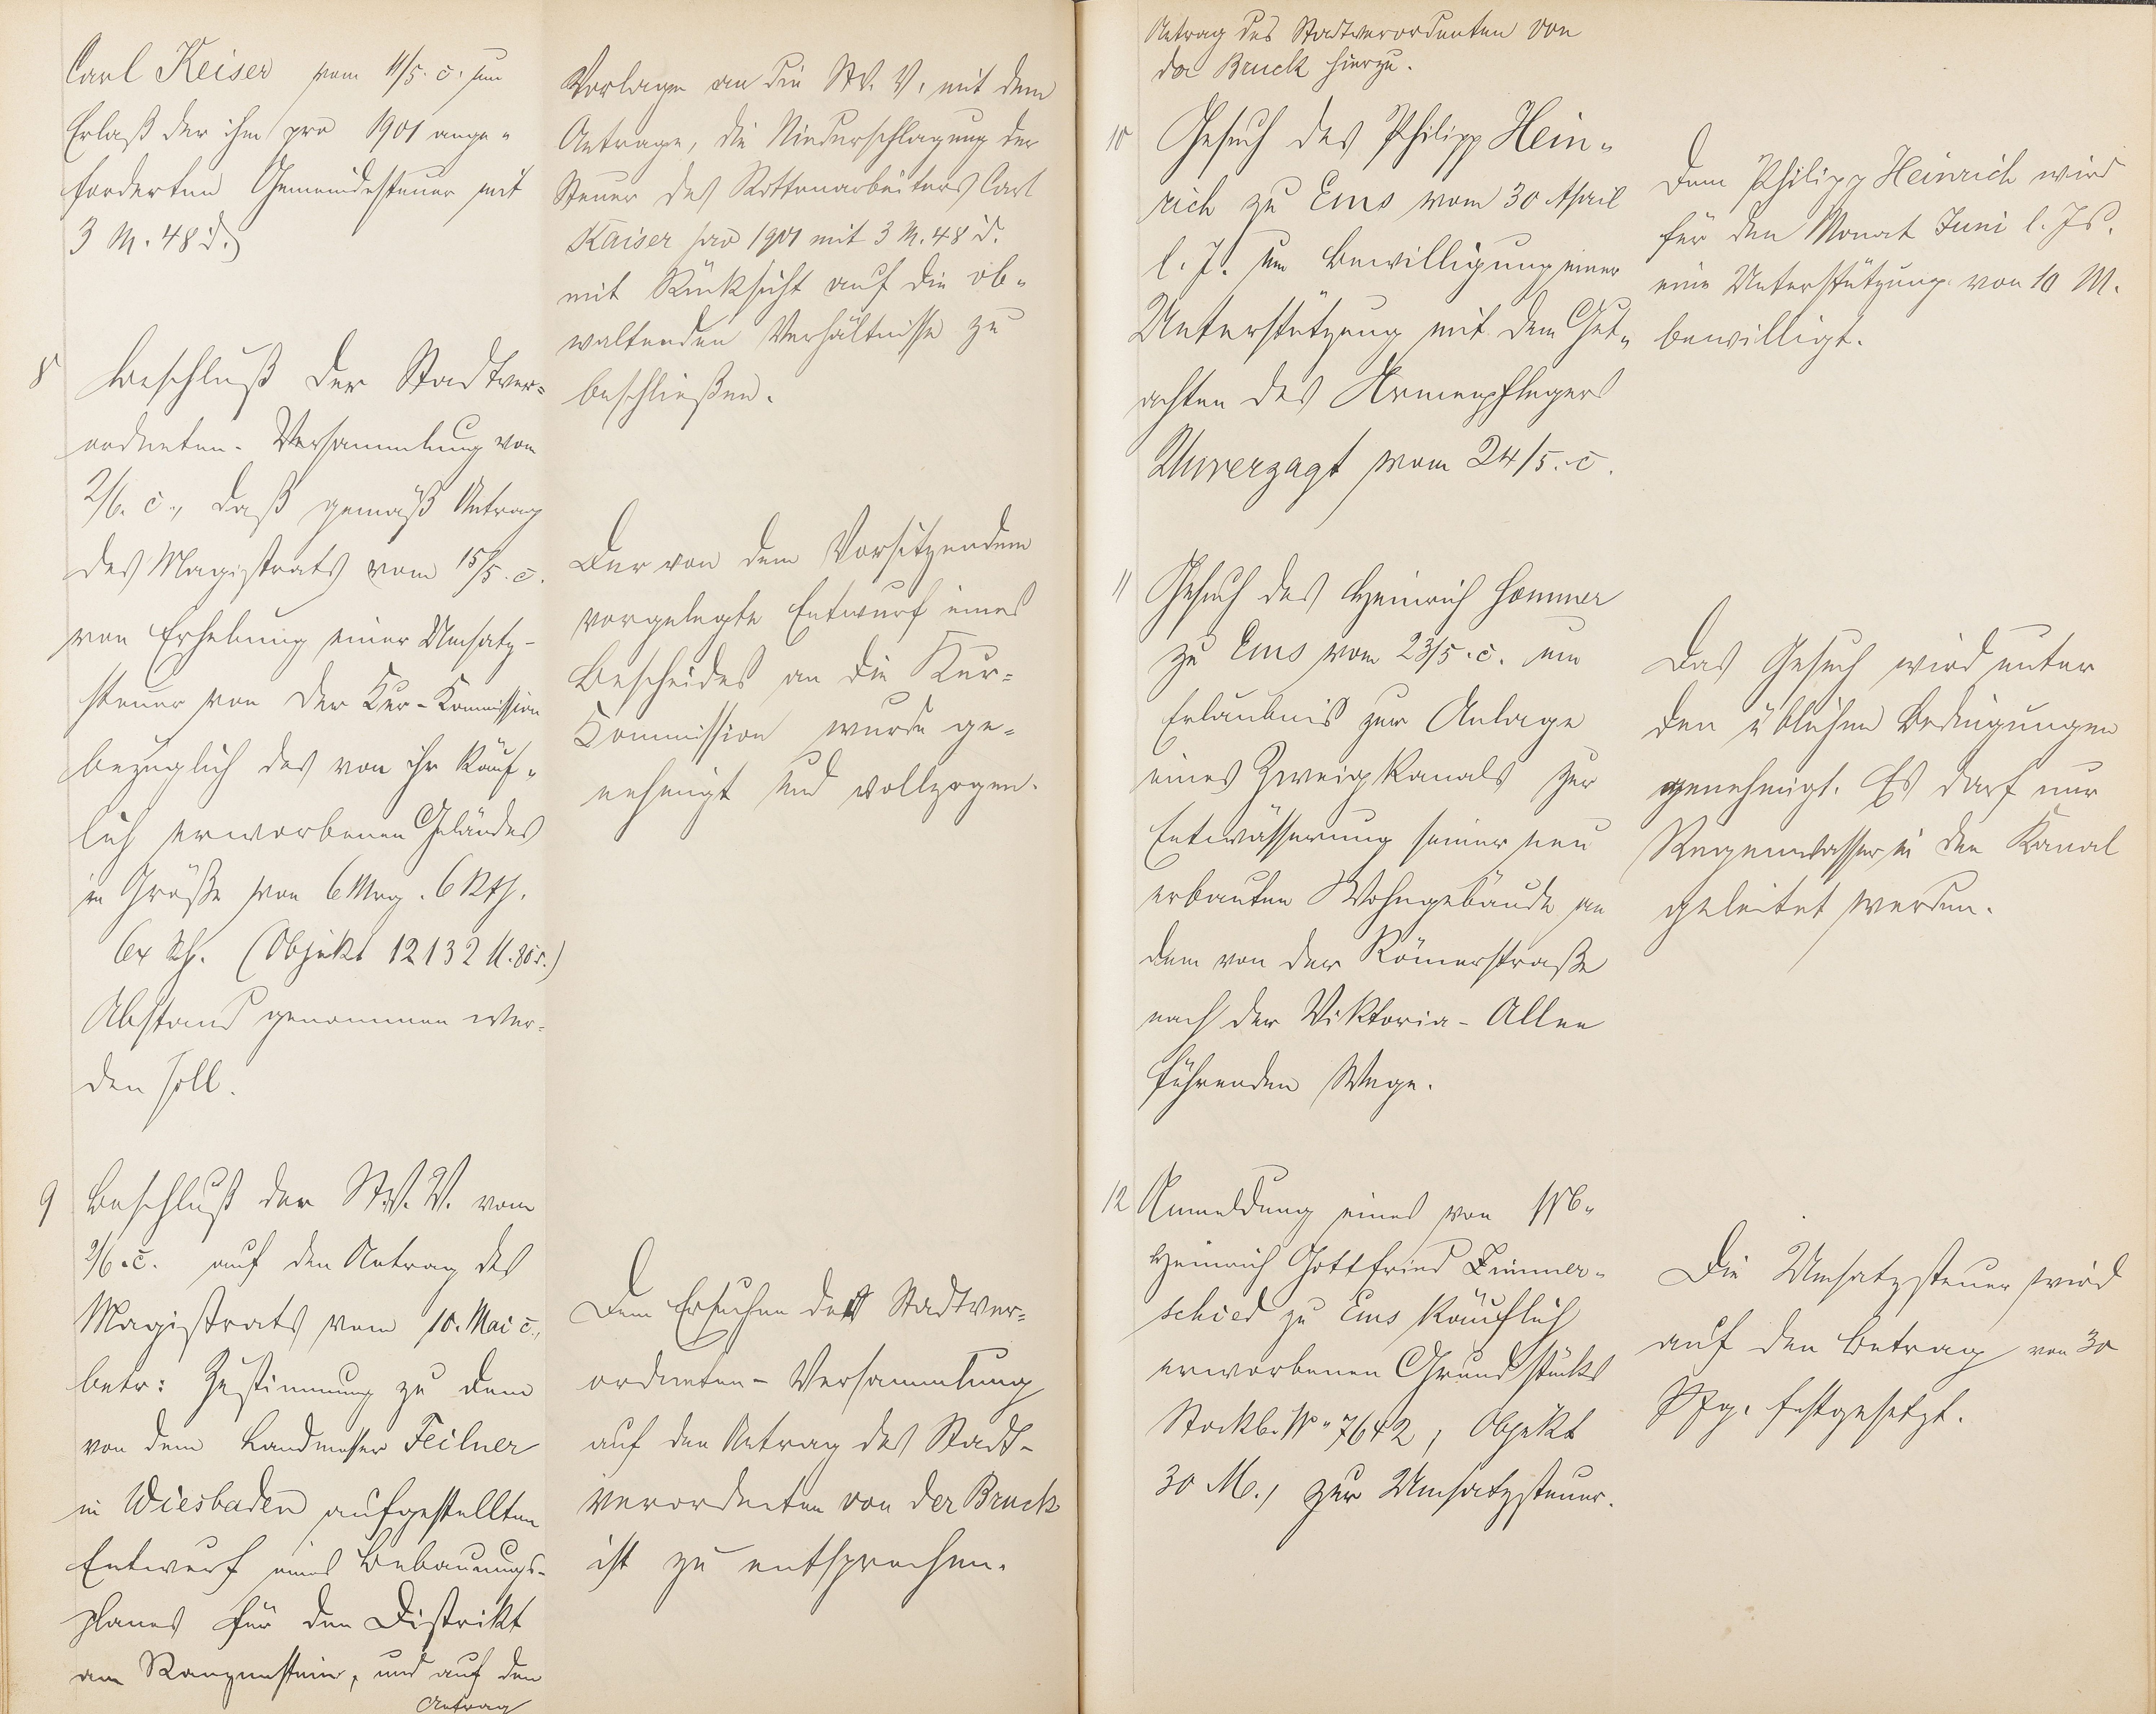 Carl Keiser vom 11/5. c. um
Erlaß der ihm pro 1901 ange„
forderten Gemeindesteuer mit
3 M. 48 d.)
Vorlage an die StV. V. mit dem
Antrage, die Niederschlagung der
Steuer des Rottenarbeiters Carl
Kaiser pro 1901 mit 3 M. 48 d.
mit Rücksicht auf die ob„
waltenden Verhältnisse zu
beschließen.
8 Beschluß der Stadtver=
ordneten-Versammlung vom
2/6. c., daß gemäß Antrag
des Magistrats vom 15/5. c.
von Erhebung einer Umsatz-
steuer von der Kur-Kommission
bezüglich des von ihr käuf„
lich erworbenen Geländes
in Größe von 6 Mrg. 6 Rth.
(Objekt 12132 M. 80 d.)
Abstand genommen wer-
den soll.
Der von dem Vorsitzendem
vorgelegte Entwurf eines
Bescheides an die Kur=
Commission wurde ge=
nehmigt und vollzogen.
9 Beschluß der StV. V. vom
2/6. c. auf den Antrag des
Magistrats vom 10. Mai c.,
betr: Zustimmung zu dem
von dem Landmesser Feilner
in Wiesbaden aufgestellten
Entwurf eines Bebauungs-
planes für den Distrikt
am und auf den
Antrag
Dem Ersuchen der Stadtver=
ordneten-Versammlung
auf den Antrag des Stadt-
verordneten von der Bruck
ist zu entsprechen.
Antrag des Stadtverordneten von
der Bruck hierzu.
10 Gesuch des Philipp Hein„
rich zu Ems vom 30 April
l. J. um Bewilligung einer
Unterstützung mit dem Gut„
achten des Armenpflegers
Unverzagt vom 24/5. c.
Dem Philipp Heinrich wird
für den Monat Juni l. Js.
eine Unterstützung von 10 M.
bewilligt.
11 Gesuch des Heinrich Hommer
zu Ems vom 23/5. c. um
Erlaubnis zur Anlage
eines Zweigkanals zur
Entwässerung seiner neu
erbauten Wohngebäude an
dem von der Römerstraße
nach der Viktoria-Allee
führenden Wege.
Das Gesuch wird unter
den üblichen Bedingungen
genehmigt. Es darf nur
Regenwasser in den Kanal
geleitet werden.
12 Anmeldung eines von
Heinrich Gottfried Zimmer„
schied zu Ems käuflich
erworbenen Grundstücks
Stockb. No. 7642, Objekt
30 M., zur Umsatzsteuer.
Die Umsatzsteuer wird
auf den Betrag von 30
Pfg. festgesetzt.